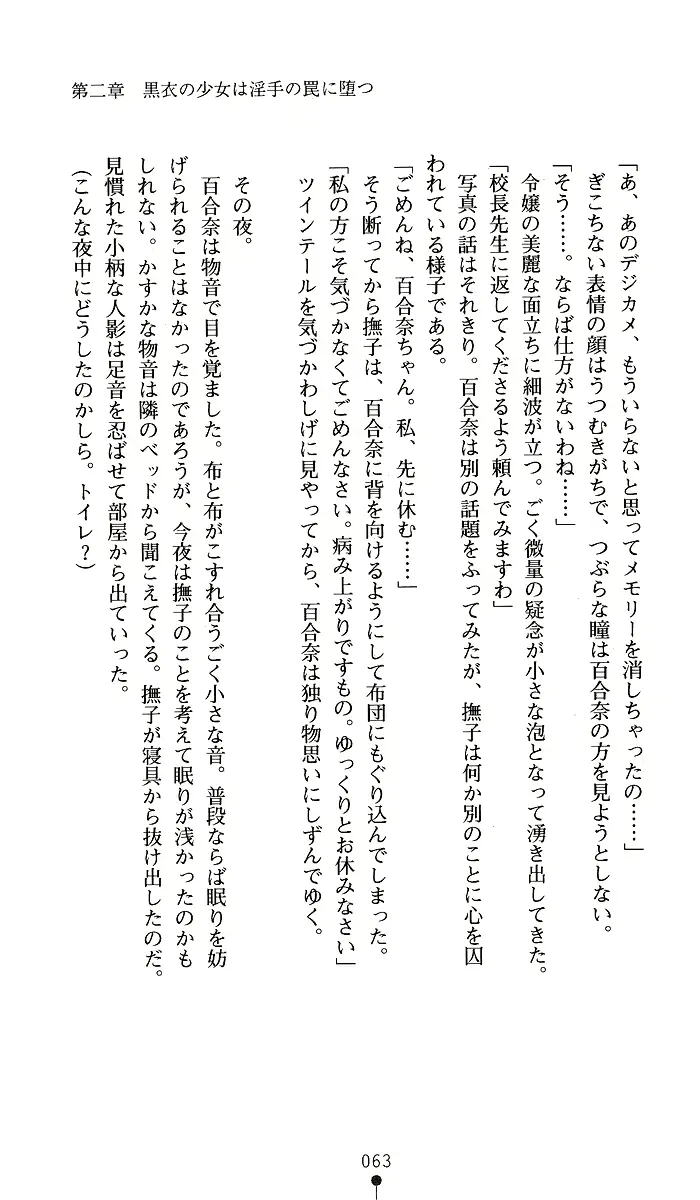 第二章　黒衣の少女は淫手の罠に堕つ
「あ、あのデジカメ、もういらないと思ってメモリーを消しちゃったの……」
ぎこちない表情の顔はうつむきがちで、つぶらな瞳は百合奈の方を見ようとしない。
「そう……。ならば仕方がないわね……」
令嬢の美麗な面立ちに細波が立つ。ごく微量の疑念が小さな泡となって湧き出してきた。
「校長先生に返してくださるよう頼んでみますわ」
写真の話はそれきり。百合奈は別の話題をふってみたが、撫子は何か別のことに心を囚
われている様子である。
「ごめんね、百合奈ちゃん。私、先に休む……」
そう断ってから撫子は、百合奈に背を向けるようにして布団にもぐり込んでしまった。
「私の方こそ気づかなくてごめんなさい。病み上がりですもの。ゆっくりとお休みなさい」
ツインテールを気づかわしげに見やってから、百合奈は独り物思いにしずんでゆく。
その夜。
百合奈は物音で目を覚ました。布と布がこすれ合うごく小さな音。普段ならば眠りを妨
げられることはなかったのであろうが、今夜は撫子のことを考えて眠りが浅かったのかも
しれない。かすかな物音は隣のベッドから聞こえてくる。撫子が寝具から抜け出したのだ。
見慣れた小柄な人影は足音を忍ばせて部屋から出ていった。
（こんな夜中にどうしたのかしら。トイレ？）
063